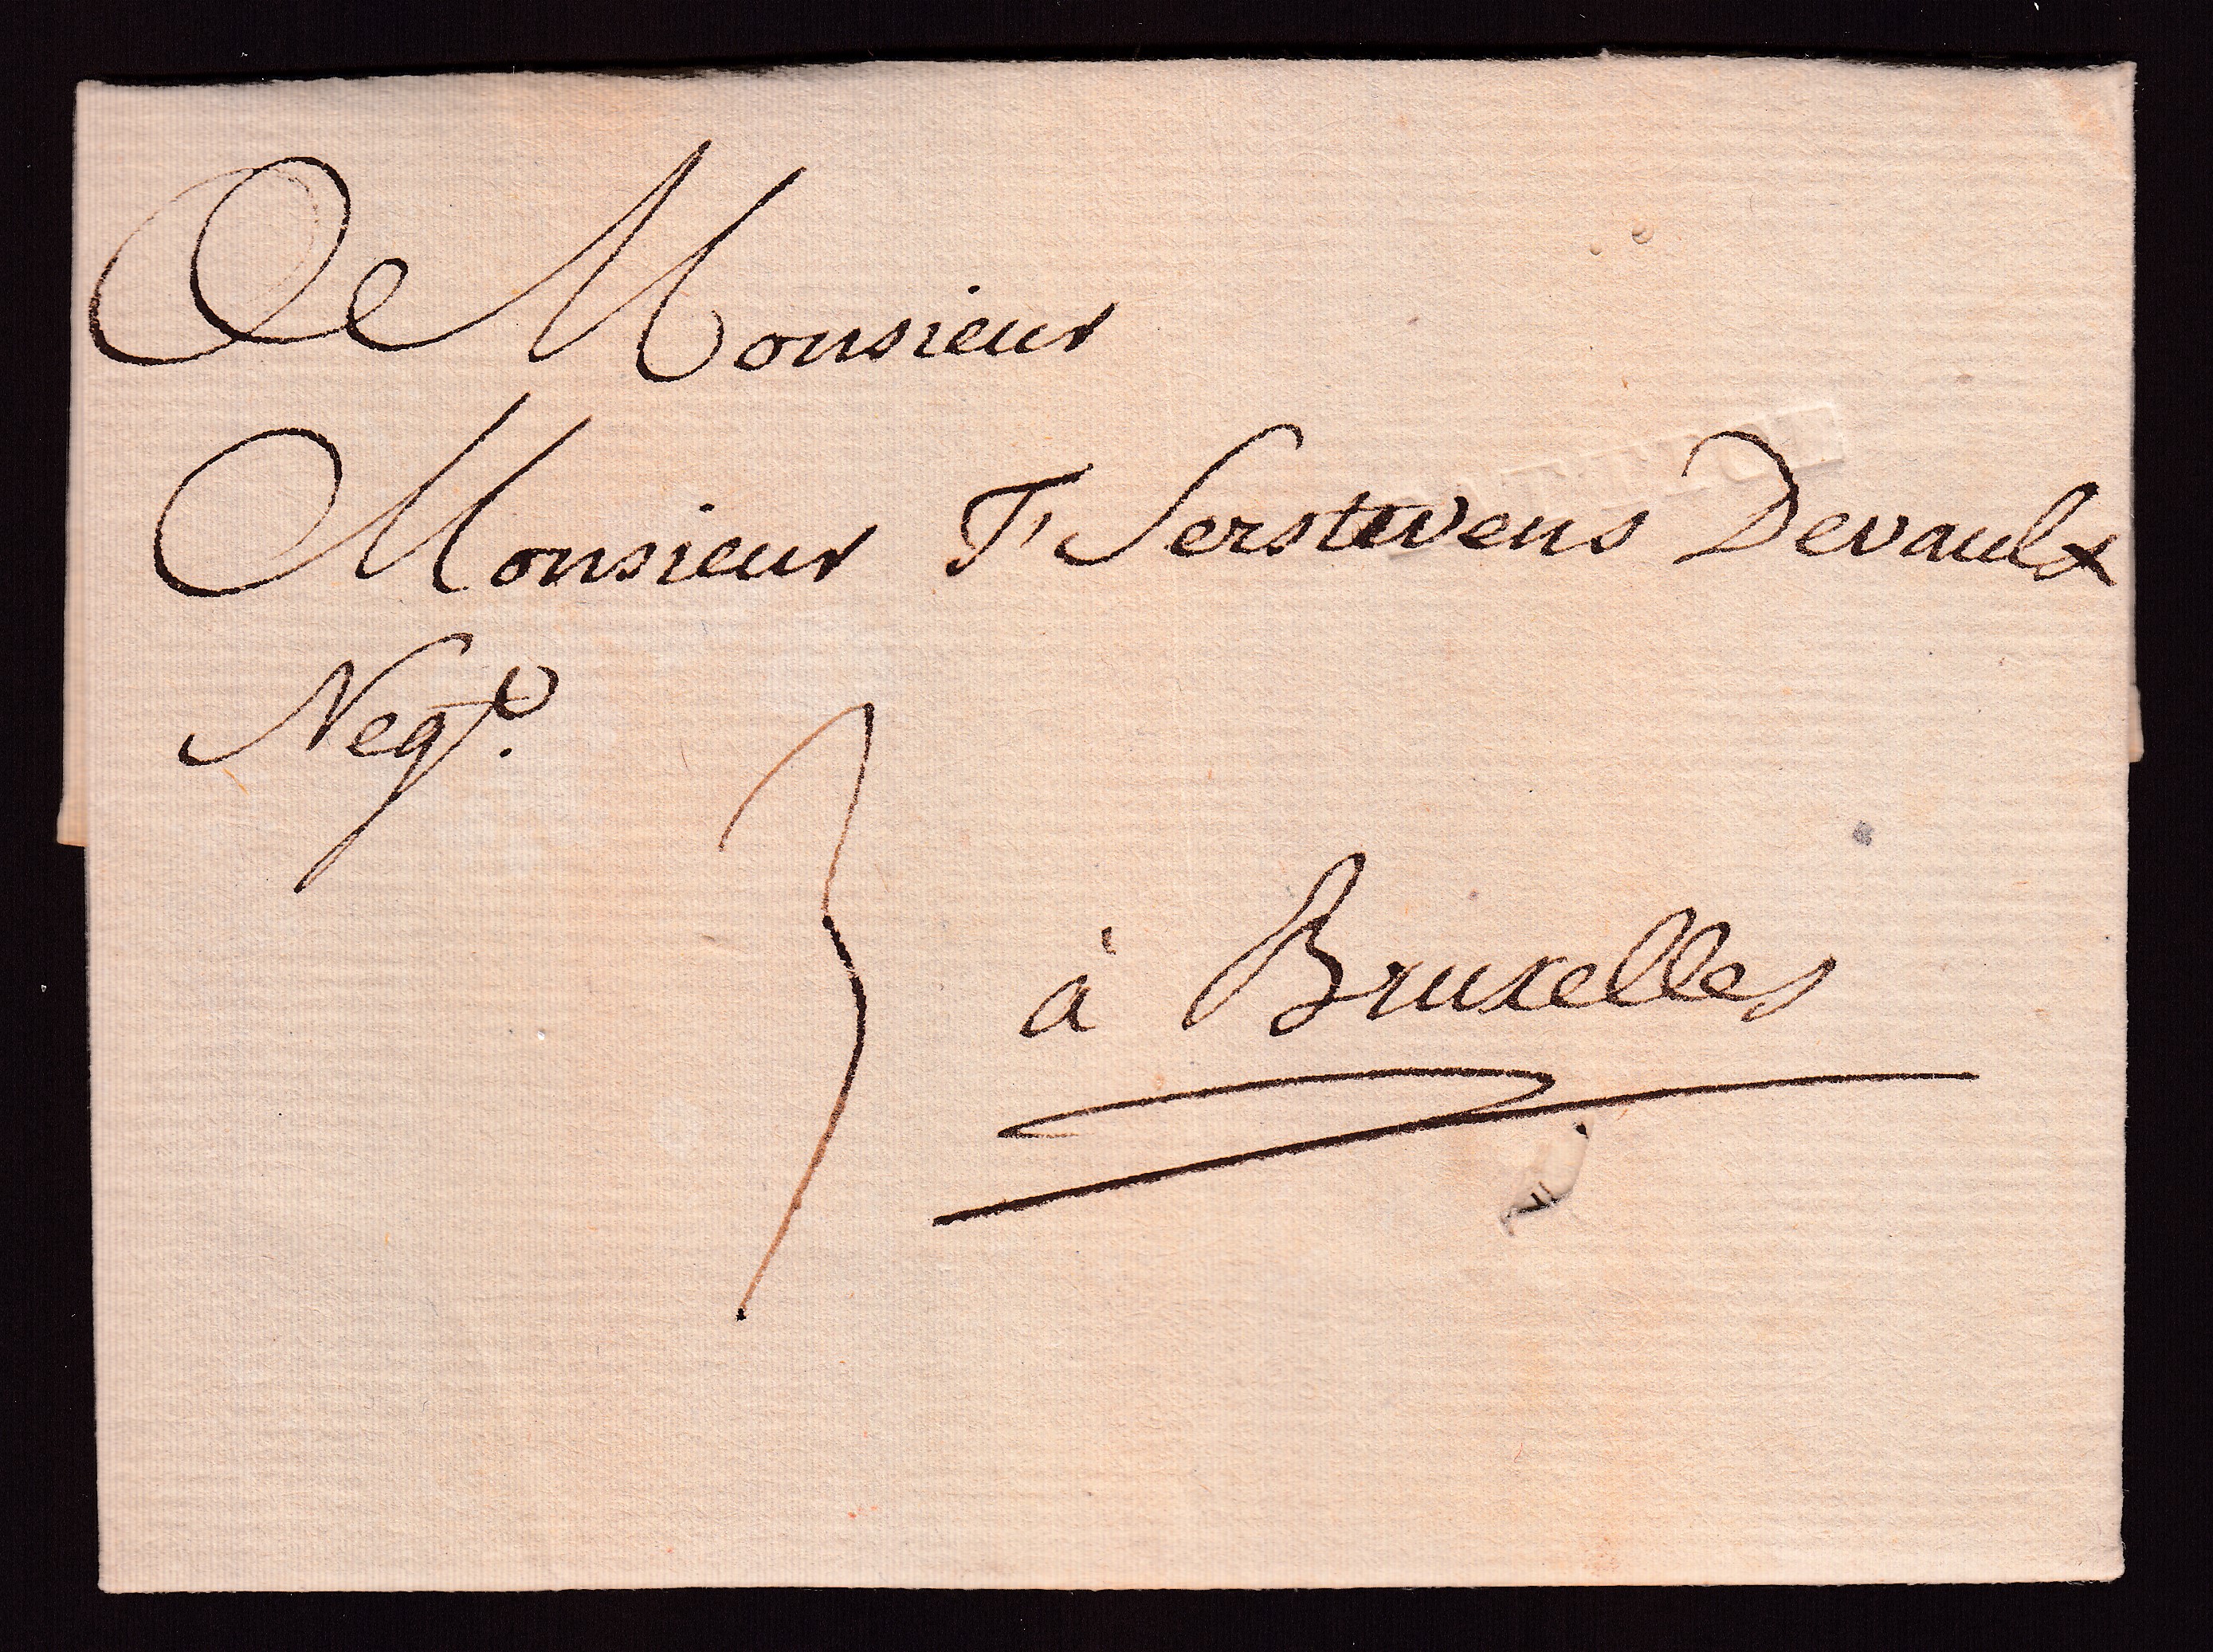 A Monsieur
Monsieur T'Serstevens Devaulx
Negt.
3
à Bruxelles